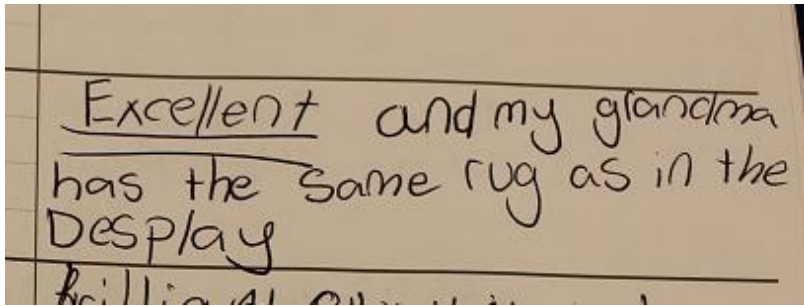 Excellent and my grandma
has the same rug as in the
Desplay